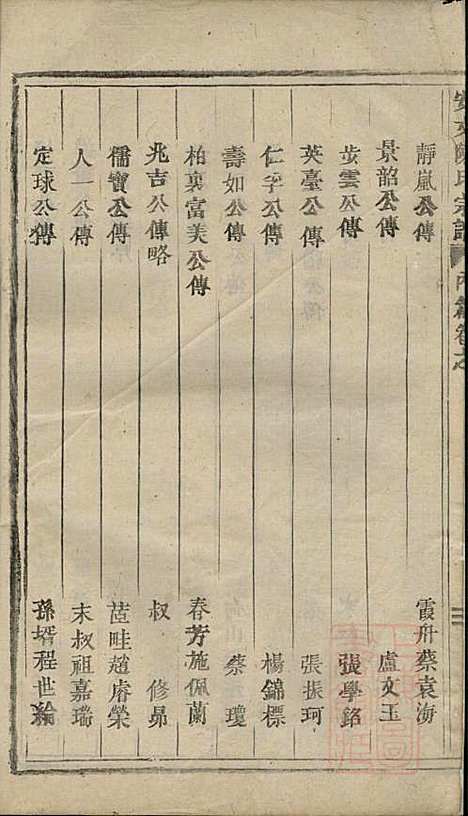 安文陳氏宗譜 內篇卷之
靜嵐公傳 霞舟蔡袁海
景韶公傳 盧文玉
步雲公傳 張學銘
英臺公傳 張振珂
仁孚公傳 楊錦標
壽如公傳 蔡瓊
柏裏富美公傳 春芳施佩蘭
兆吉公傳略 叔修昴
儒寶公傳 茝畦趙睿榮
人一公傳 末叔祖嘉瑞
定球公傳 孫壻程世綸